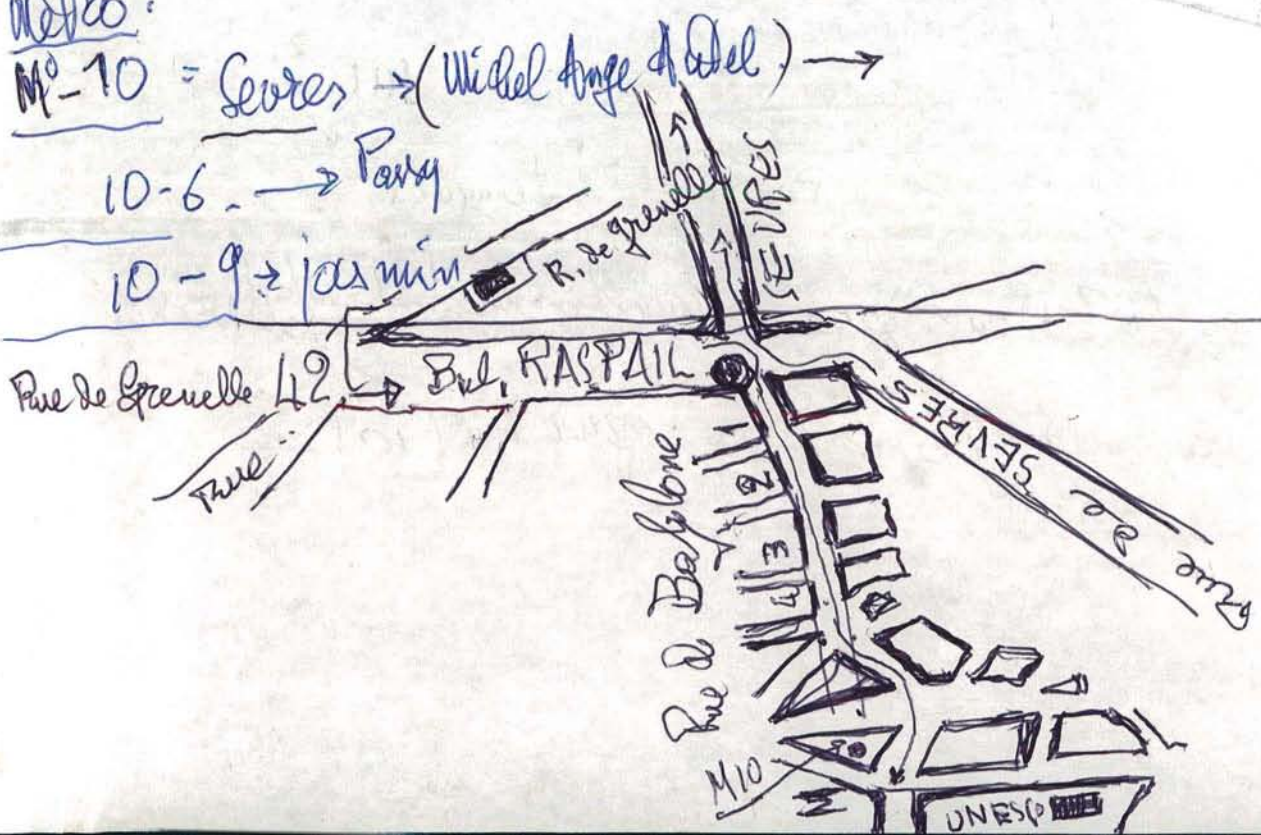 Metro:
M°-10 = Sevres → (Michel Ange Autel) →
10-6. → Passy
10-9 → jasmin
R. de grenelle
SEVRES
Rue de Grenelle 42 → Bvd. RASPAIL
Rue
Rue de SEVRES
Rue d Babilone
1
2
3
4
M10
M
UNESCO